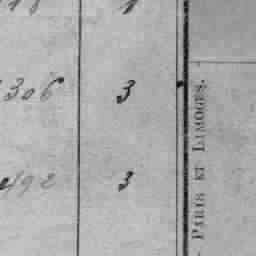 306 3
492 3
PARIS ET LIMOGES.